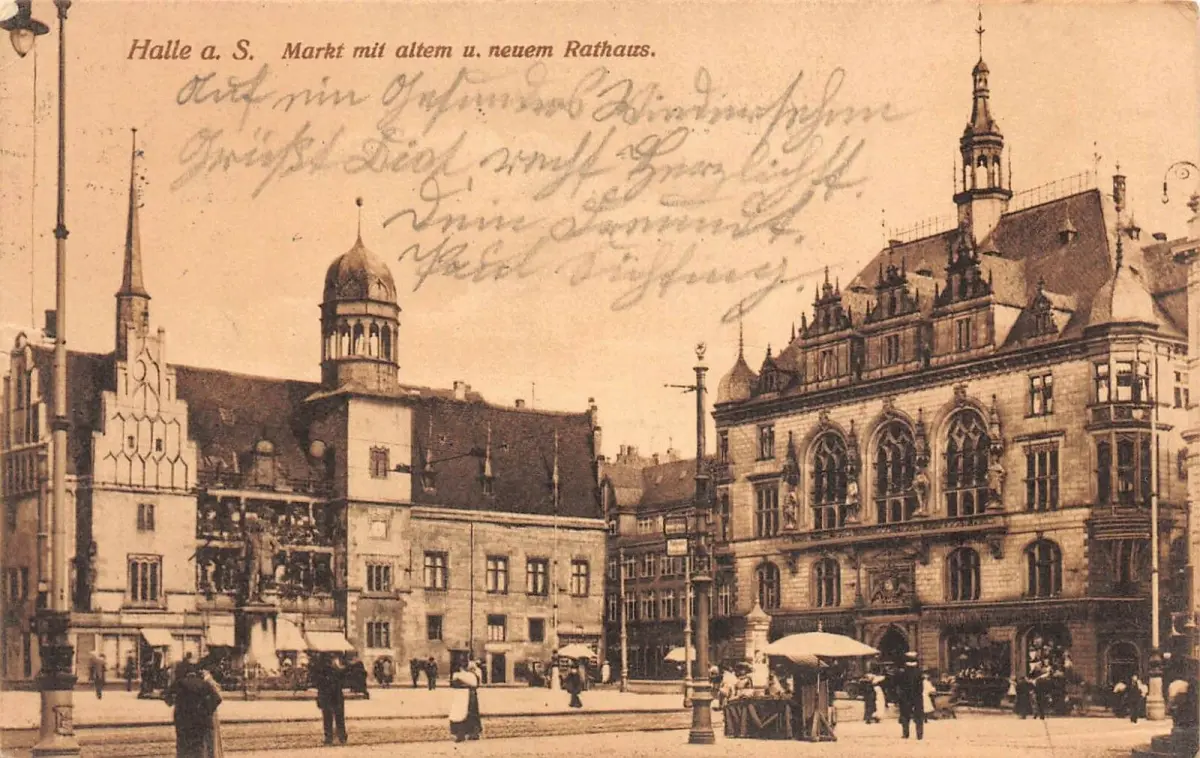 Halle a. S. Markt mit altem u. neuem Rathaus.
Auf ein Gesundes Wiedersehn
Grüßt Dich recht Herzlichst
Dein Freund.
Paul